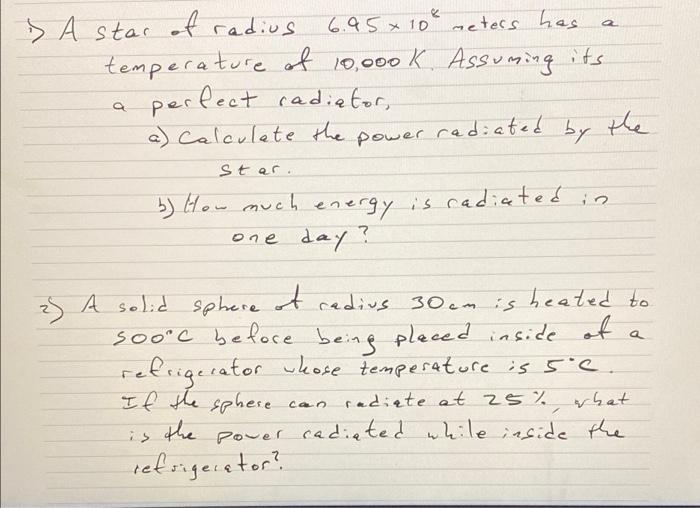 1) A star of radius 6.95 × 10⁸ meters has a
temperature of 10,000 K. Assuming its
a perfect radiator,
a) Calculate the power radiated by the
star.
b) How much energy is radiated in
one day?
2) A solid sphere of radius 30cm is heated to
500°C before being placed inside of a
refrigerator whose temperature is 5°C.
If the sphere can radiate at 25%, what
is the power radiated while inside the
refrigerator?